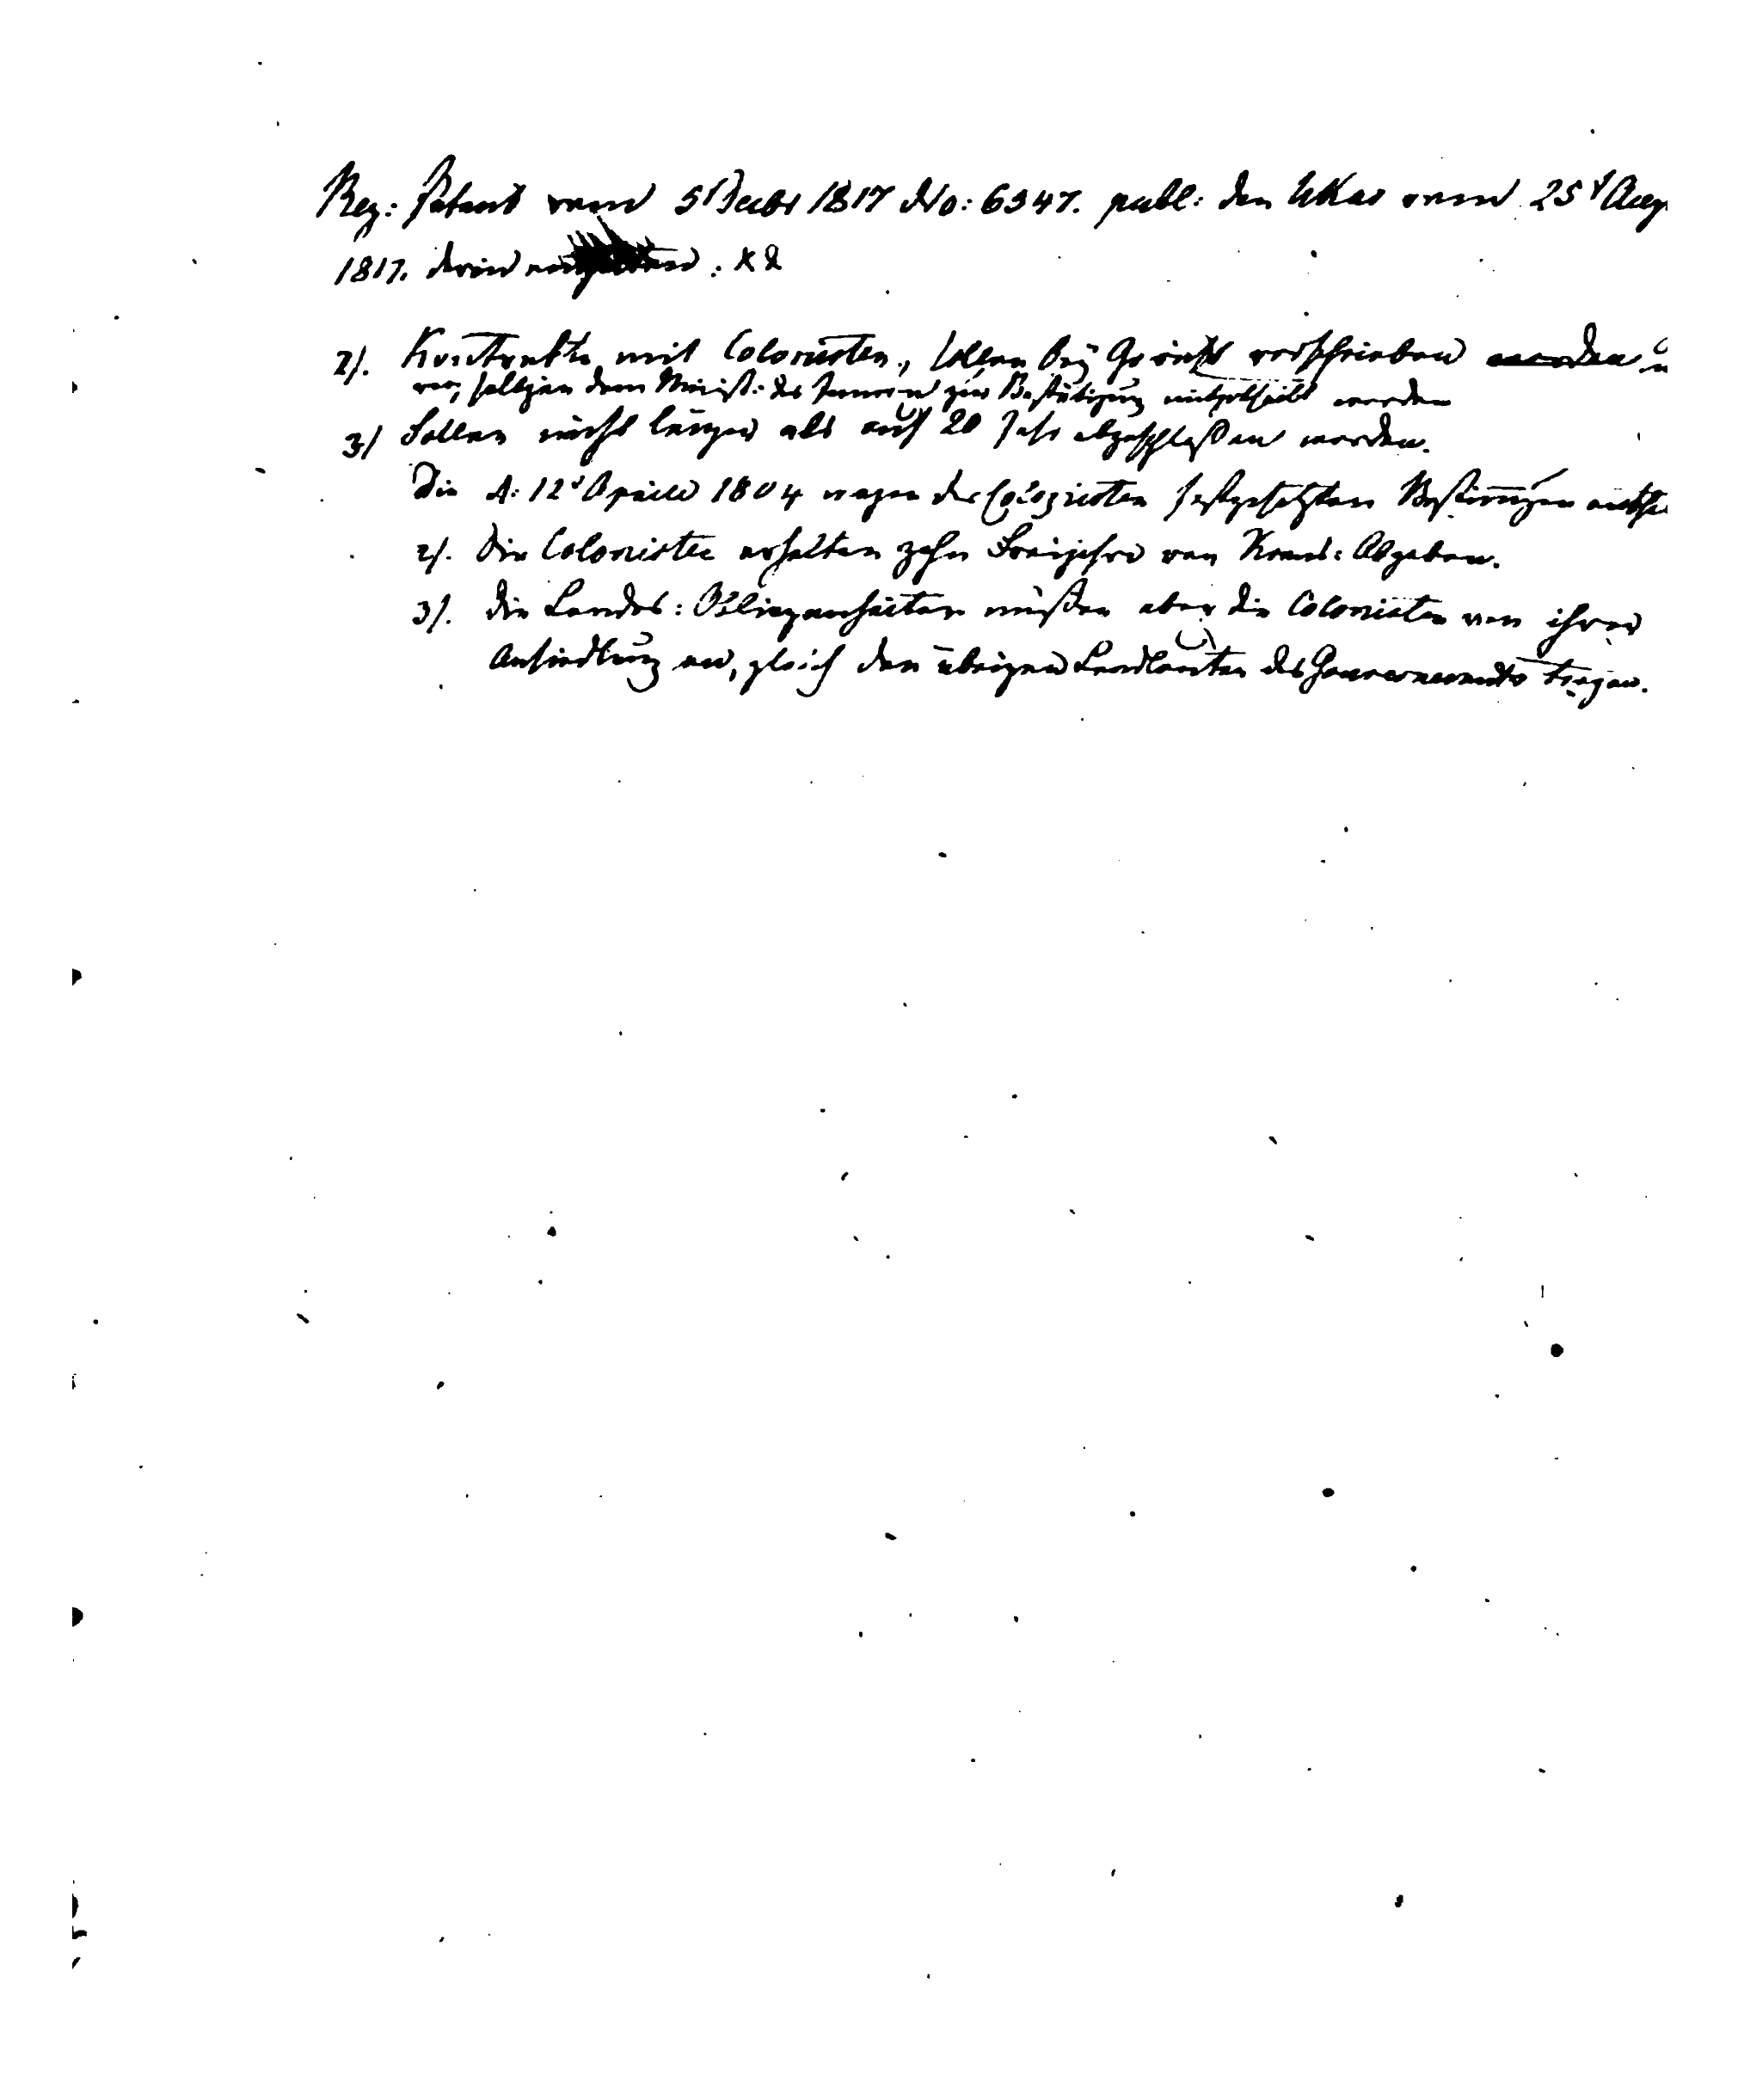 Reg: Patent vom 5t Decbr 1817 No: 6347. publ: den Ukas vom 25t Aug
1817. darin enthalten: xx
2). Kontrakte mit Colonisten, sollen bey Gericht verschrieben werden u
von selbigen dem Minist: des Innern zur Bestätigung mitgetheilt werden
3) Sollen nicht länger als auf 20 Jahr abgeschlossen werden.
Die d: 12t Aprill 1804 wegen der Colonisten festgesetzten Bestimungen
2). Die Colonisten erhalten zehn Freijahre von Krons: Abgaben.
3). die Landes: Obliegenheiten müßen aber die Colonisten von ihrer
Ansiedlung an, gleich den übrigen Landleuten des Gouvernements tragen.